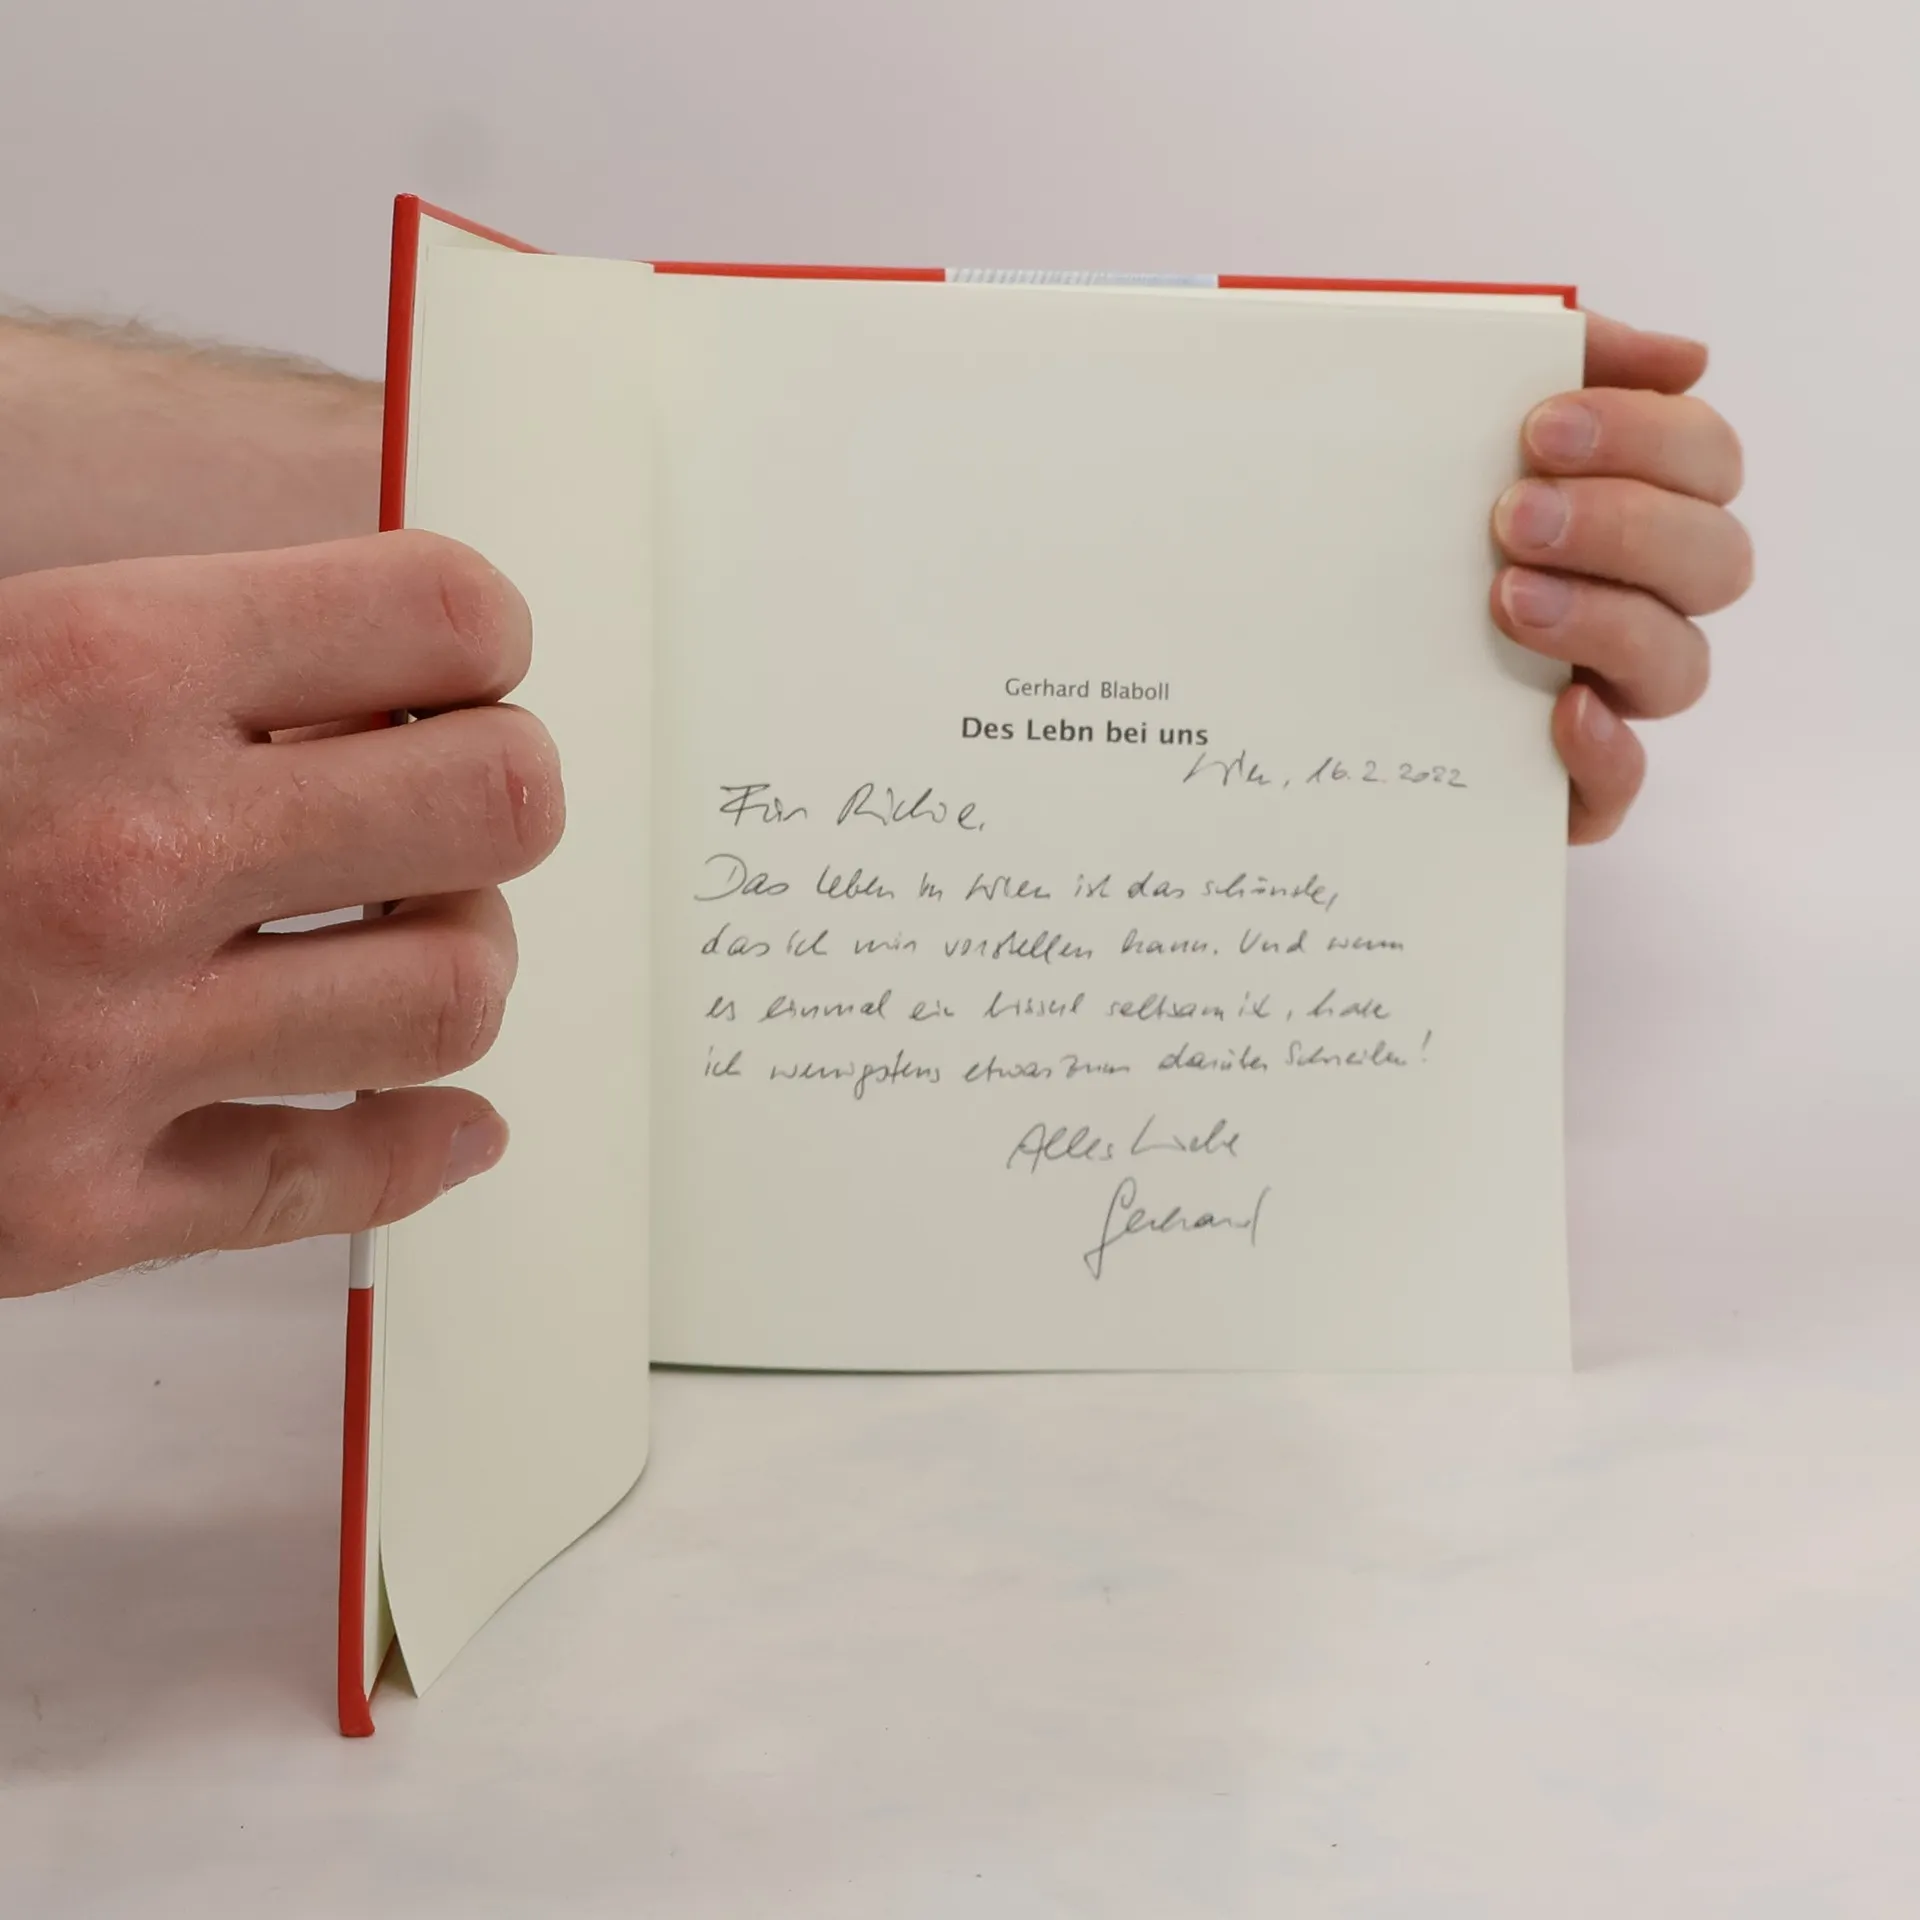 Gerhard Blaboll
Des Lebn bei uns
Wien, 16.2.2022
Für
Das Leben in Wien ist das schönste,
das ich mir vorstellen kann. Und wenn
es einmal ein bisserl seltsam ist, habe
ich wenigstens etwas zum darüber Schreiben!
Alles Liebe
Gerhard